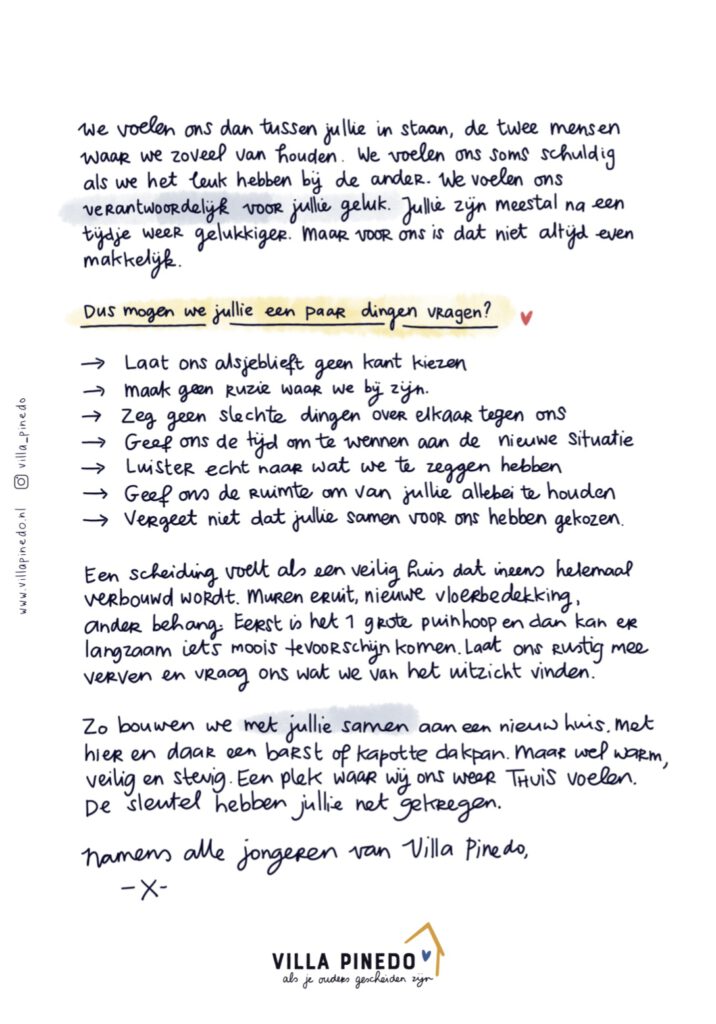 We voelen ons dan tussen jullie in staan, de twee mensen
waar we zoveel van houden. We voelen ons soms schuldig
als we het leuk hebben bij de ander. We voelen ons
verantwoordelijk voor jullie geluk. Jullie zijn meestal na een
tijdje weer gelukkiger. Maar voor ons is dat niet altijd even
makkelijk.
Dus mogen we jullie een paar dingen vragen?
→ Laat ons alsjeblieft geen kant kiezen
→ Maak geen ruzie waar we bij zijn.
→ Zeg geen slechte dingen over elkaar tegen ons
→ Geef ons de tijd om te wennen aan de nieuwe situatie
→ Luister echt naar wat we te zeggen hebben
→ Geef ons de ruimte om van jullie allebei te houden
→ Vergeet niet dat jullie samen voor ons hebben gekozen.
Een scheiding voelt als een veilig huis dat ineens helemaal
verbouwd wordt. Muren eruit, nieuwe vloerbedekking,
ander behang. Eerst is het 1 grote puinhoop en dan kan er
langzaam iets moois tevoorschijn komen. Laat ons rustig mee
verven en vraag ons wat we van het uitzicht vinden.
Zo bouwen we met jullie samen aan een nieuw huis. Met
hier en daar een barst of kapotte dakpan. Maar wel warm,
veilig en stevig. Een plek waar wij ons weer THUIS voelen.
De sleutel hebben jullie net gekregen.
Namens alle jongeren van Villa Pinedo,
-X-
www.villapinedo.nl villa_pinedo
VILLA PINEDO
als je ouders gescheiden zijn